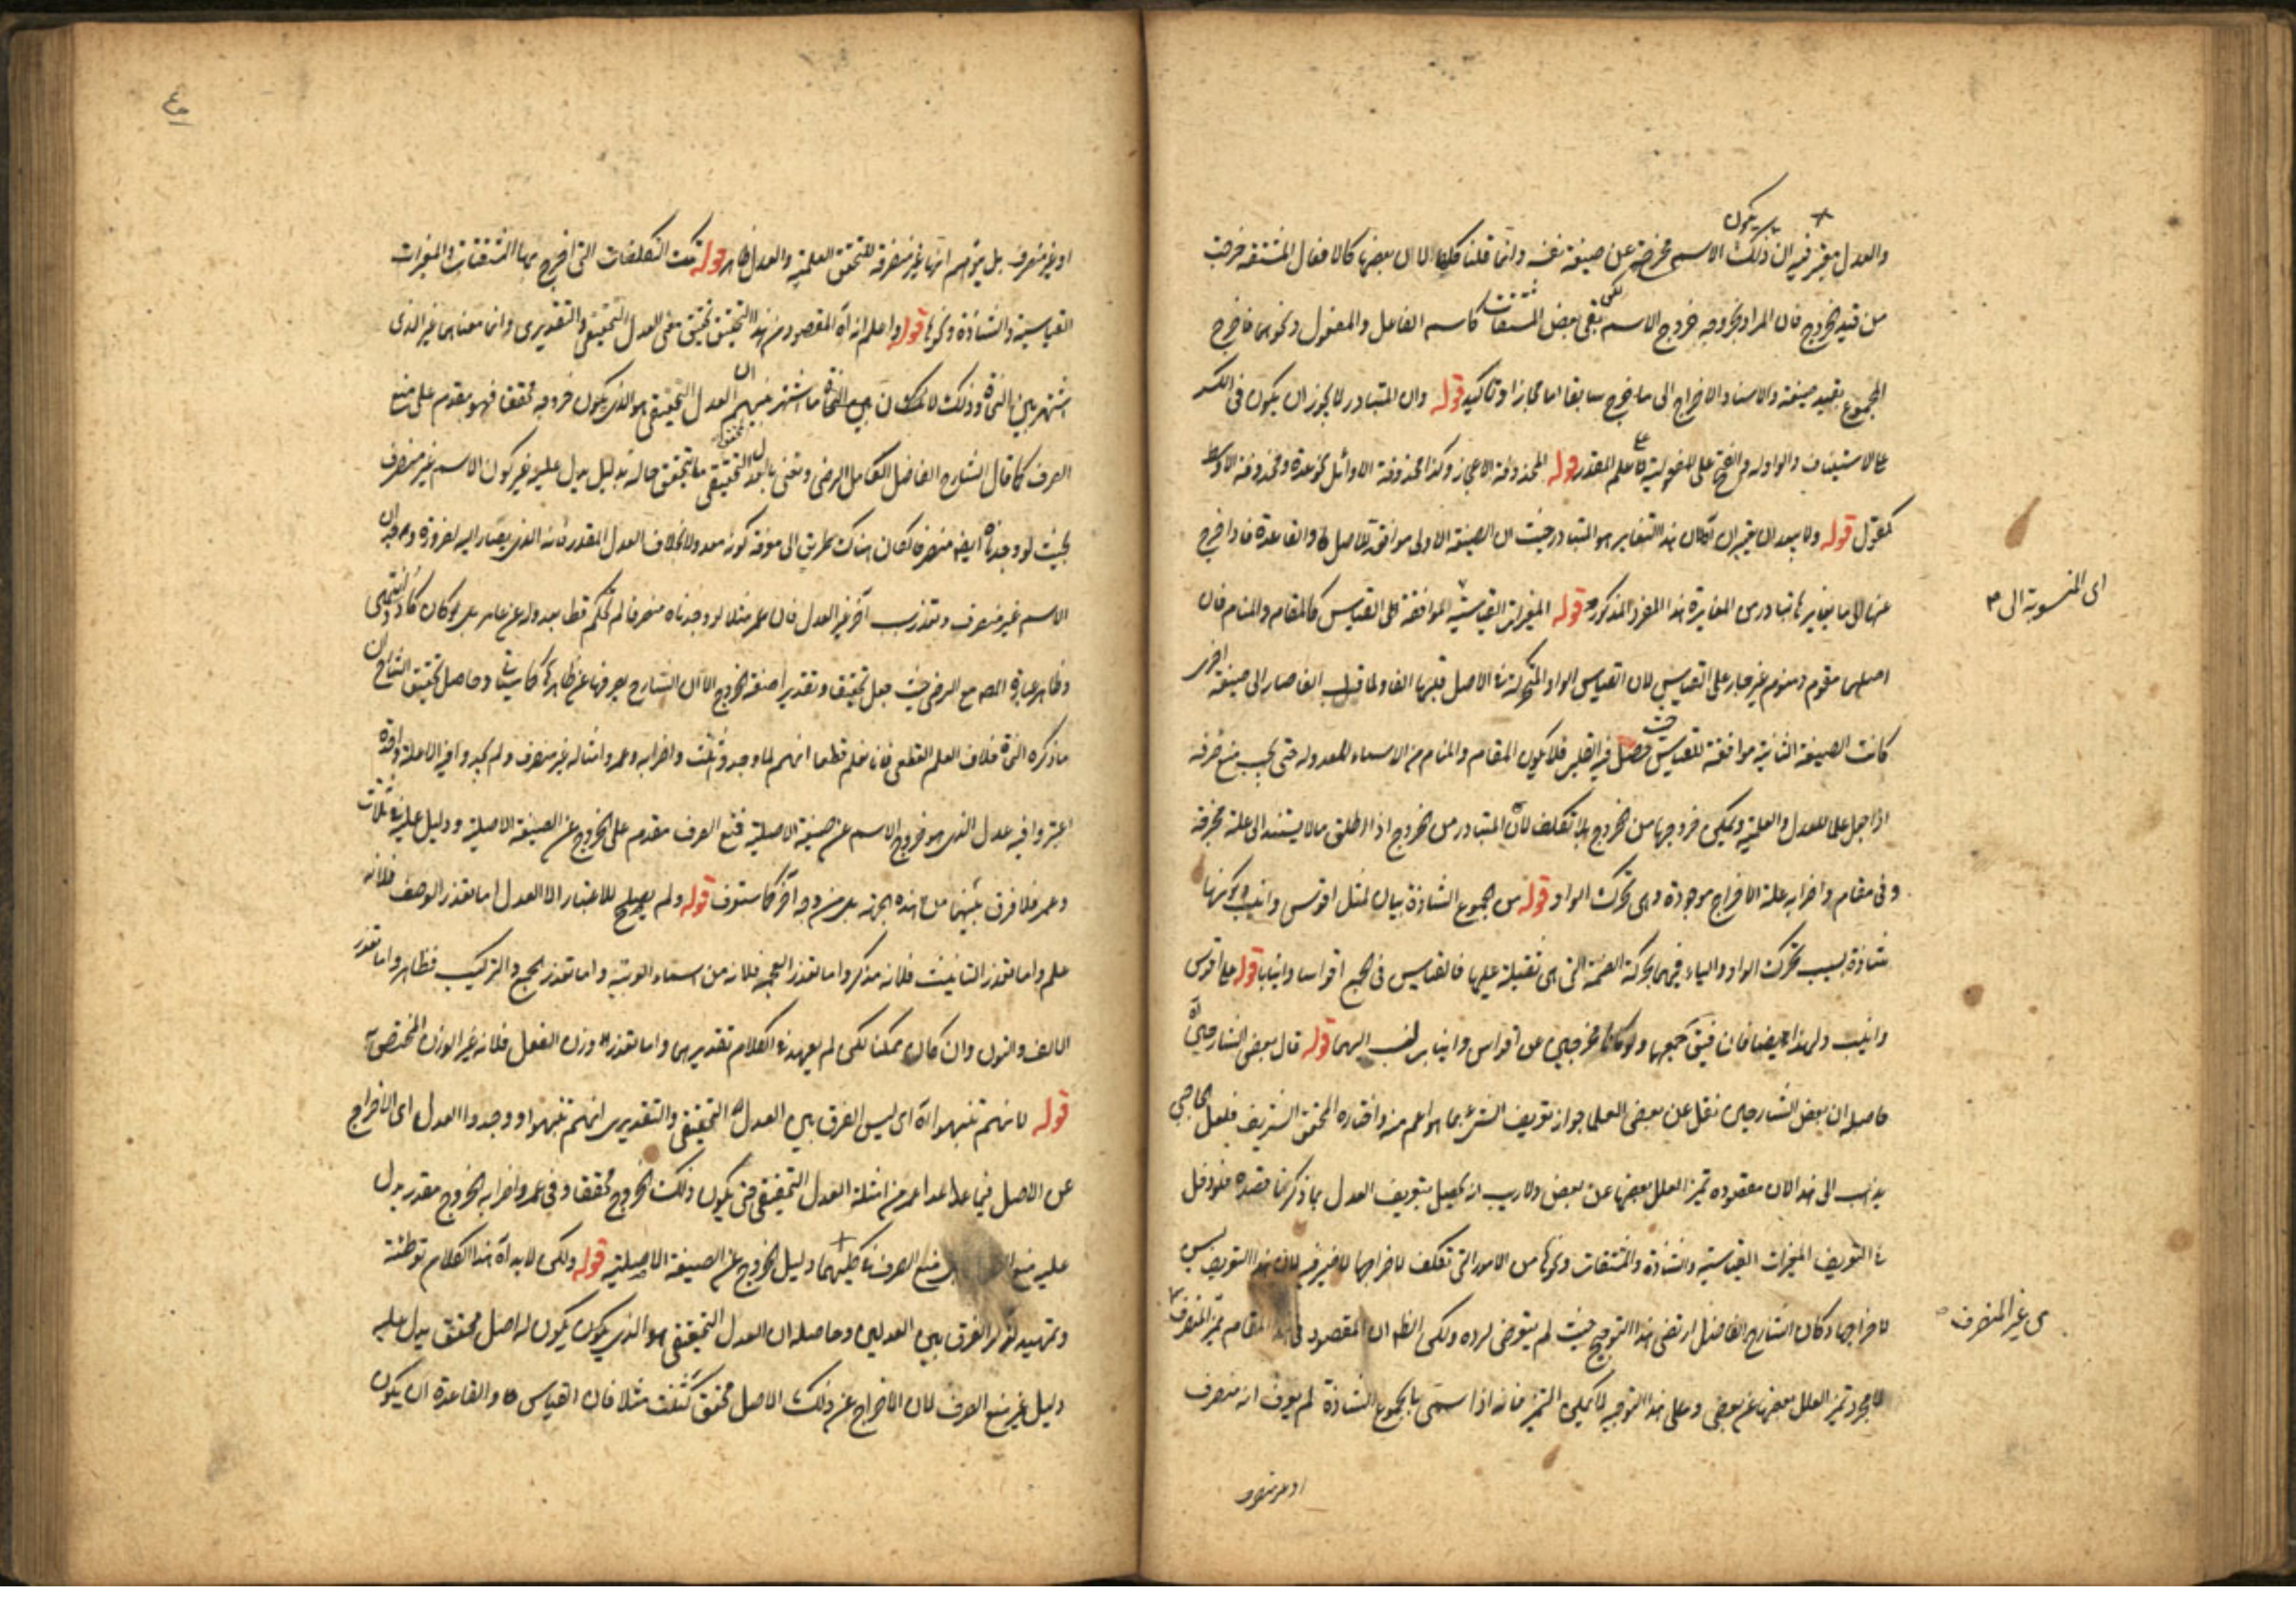 والعدل يعتبر فيه ان ذلك الاسم مخرجة عن صيغة نفسه وانما قلنا كالافعال المشتقة خرجت
من قيد الخروج فان المراد بخروجه خروج الاسم بقى بعض المشتقات كاسم الفاعل والمفعول ونحوهما فاخرج
المجموع بقيد صيغة والاسناد والاخراج الى ما خرج سابقا اما مجازا او تاكيد قوله وان المتبادر لا يجوز ان يكون فى الكسر
على الاستيناف والواو والفتح على المفعولية علم المقدر قوله المحذوفة الاعجاز وكذا محذوفة الاوائل نحو عدة ومحذوفة الاوسط
كمقول قوله ولا يبعد ان هذا التغاير هو المتبادر حيث ان الصيغة الاولى موافقة للاصل والقاعدة فاذا خرج
عنها الى ما يغايرها تبادر من المغايرة هذا المفرد المذكور قوله المغيرات القياسية الموافقة على القياس كالمقام والمنام فان
اى المنسوبة الى
اصلهما مقوم ومنوم غير جار على القياس لان القياس الواو المتحركة فى الاصل قبلها الفا ولما قلب الفا صار الى صيغة اخرى
كانت الصيغة الثانية موافقة للقياس حصل فيه القلب فلا يكون المقام والمنام من الاسماء المعدولة حتى يجب منع صرفه
اذا جعل علما للعدل والعلمية ويمكن خروجها من الخروج بلا تكلف لان المتبادر من الخروج اذا اطلق ما لا يستند الى علة مخرجة
وفى مقام واضرابه علة الاخراج موجودة وهى تحرك الواو قوله من الجموع الشاذة بيان لمثل اقوس وانيب وكونها
شاذة بسبب تحرك الواو والياء فيهما بحركة الضمة التى هى ثقيلة عليها فالقياس فى الجمع اقواسا وانيابا قوله على اقوس
وانيب ولهذا ايضا فان فيق جمعها ولو كانا مخرجين عن اقواس وانياب لنسب اليهما قوله قال بعض الشارحين اه
حاصله ان بعض الشارحين نقل عن بعض العلما جواز تعريف الشئ بما هو اعم منه واختاره المحقق الشريف فلعل
يذهب الى هذا لان مقصوده تميز العلل بعضها عن بعض ولا ريب انه يحصل بتعريف العدل بما ذكر هنا قصده فلو دخل
فى التعريف المغيرات القياسية والشاذة والمشتقات ونحوها من الامور التى تكلف لاخراجها لا ضير فيه لان هذا التعريف ليس
لاخراجها وكان الشارح الفاضل ارتضى هذا التوجيه حيث لم يتعرض لرده ولكن الظ ان المقصود فى هذا المقام تميز المنصرف
عن غير المنصرف
لا مجرد تميز العلل بعضها عن بعض وعلى هذا التوجيه لا يمكن التميز فانه اذا سمى بالجموع الشاذة لم يعرف انه منصرف
او غير منصرف
٤٠
او غير منصرف بل يتوهم انها غير منصرفة لتحقق العلمية والعدل قوله تلك التكلفات التى اخرج بها المشتقات والمغيرات
القياسية والشاذة ونحوها قوله واعلم انه اه المقصود من هذا التحقيق تحقيق معنى العدل التحقيقى والتقديرى وان معناهما غير الذى
اشتهر بين النحاة وذلك ان العدل التحقيقى هو الذى يكون خروجه محققا فهو مقدم على منع
الصرف كما قال الشارح الفاضل الكامل الرضى ونعنى بالعدل التحقيقى ما يتحقق حاله بدليل يدل عليه غير كون الاسم غير منصرف
بحيث لو وجدناه ايضا منصرفا لكان هناك طريق الى معرفة كونه معدولا بخلاف العدل المقدر فانه الذى يصار اليه لضرورة وجدان
الاسم غير منصرف وتعذر سبب آخر غير العدل فان عمر مثلا لو وجدناه منصرفا لم نحكم قط بعدوله عن عامر بل كان كادد انتهى
وظاهر عبارة المص مع الرضى حيث جعل تحقيقا وتقديرا صفة الخروج الا ان الشارح يصرفها عن ظاهرها كما سياتى وحاصل تحقيق الشارح ان
ما ذكره النحاة خلاف العلم القطعى فانا نعلم قطعا انهم لما وجدوا ثلث واضرابه وعمر وامثاله غير منصرف ولم يجدوا فيه الا علة واحدة
اعتبروا فيه عدل الذى هو خروج الاسم عن صيغة الاصلية فمنع الصرف مقدم على الخروج عن الصيغة الاصلية ودليل عليه فى ثلاث
وعمر فلا فرق بينهما من هذه الجهة بل من وجه آخر كما ستعرف قوله ولم يصلح للاعتبار الا العدل اما تعذر الوصف فلانه
علم واما تعذر التانيث فلانه مذكر واما تعذر العجمة فلانه من اسماء العربية واما تعذر الجمع والتركيب فظاهر واما تعذر
الالف والنون وان كان ممكنا لكن لم يعهد فى الكلام تقديرهما واما تعذر وزن الفعل فلانه غير الوزن المختص به
قوله لا انهم تنبهوا اه اى ليس الفرق بين العدل التحقيقى والتقديرى انهم تنبهوا ووجدوا العدل اى الاخراج
عن الاصل فيما عدا عمر من امثلة العدل التحقيقى حتى يكون ذلك الخروج محققا وفى عمر واضرابه الخروج مقدر يدل
عليه منع منع الصرف فى كليهما دليل الخروج عن الصيغة الاصلية قوله ولكن لا بد اه هذا الكلام توطئة
وتمهيد لذكر الفرق بين العدلين وحاصله ان العدل التحقيقى هو الذى يكون يكون له اصل محقق يدل عليه
دليل غير منع الصرف لان الاخراج عن ذلك الاصل محقق كثلث مثلا فان القياس والقاعدة ان يكون